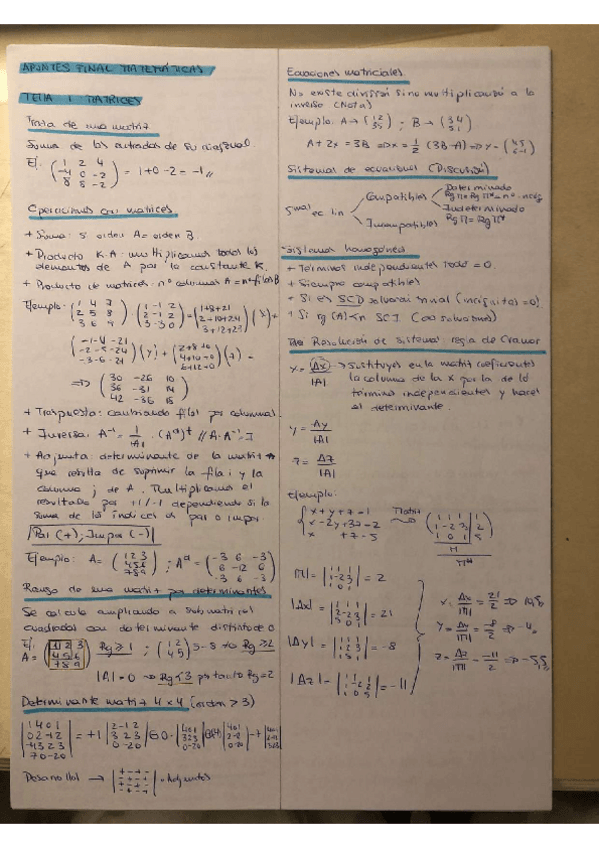 APUNTES FINAL MATEMÁTICAS
TEMA 1: MATRICES
Traza de una matriz
Suma de las entradas de su diagonal.
Ej: (1 2 4 / -4 0 -2 / 8 8 -2) = 1+0-2 = -1 //
Operaciones con matrices
+ Suma: si orden A = orden B
+ Producto K·A: multiplicamos todos los
elementos de A por la constante K.
+ Producto de matrices: nº columnas A = nº filas B
Ejemplo: (1 4 7 / 2 5 8 / 3 6 9) · (1 -1 2 / 1 -1 2 / 3 -3 0) = (1+8+21 / 2+10+24 / 3+12+27) (x) +
(-1-4-21 / -2-5-24 / -3-6-27) (y) + (2+8+0 / 4+10+0 / 6+12+0) (z) =
=> (30 -26 10 / 36 -31 14 / 42 -36 18)
+ Traspuesta: cambiando filas por columnas.
+ Inversa: A⁻¹ = 1/|A| · (Aᵃ)ᵗ // A·A⁻¹ = I
+ Adjunta: determinante de la matriz
que resulta de suprimir la fila i y la
columna j de A. Multiplicamos el
resultado por +1/-1 dependiendo si la
suma de los índices es par o impar.
Par (+); Impar (-)
Ejemplo: A = (1 2 3 / 4 5 6 / 7 8 9) ; Aᵃ = (-3 6 -3 / 6 -12 6 / -3 6 -3)
Rango de una matriz por determinantes
Se calcula ampliando a submatrices
cuadradas con determinante distinto de 0
Ej: A = (1 2 3 / 4 5 6 / 7 8 9) Rg ≥ 1 ; (1 2 / 4 5) Rg ≥ 2
|A| = 0 → Rg < 3 por tanto Rg = 2
Determinante matriz 4x4 (orden > 3)
Desarrollo → = Adjuntos
Ecuaciones matriciales.
No existe división sino multiplicación a la
inversa (Nota)
Ejemplo: A → (1 2 / 3 5) ; B → (3 4 / 5 1)
A + 2x = 3B => x = 1/2 (3B - A) =>
Sistemas de ecuaciones (Discusión)
Sist ec. lin
Compatibles
Determinado
Indeterminado
Incompatibles
Sistemas homogéneos
+ Términos independientes todo = 0.
+ Siempre compatibles
+ Si es SCD solución trivial (incógnitas = 0)
+ Si rg (A) < n SCI. (∞ soluciones)
Resolución de sistemas: regla de Cramer
x = |Δx| / |A| → Sustituyes en la matriz coeficientes
la columna de la x por la de los
términos independientes y haces
el determinante.
y = Δy / |A|
z = Δz / |A|
Ejemplo:
{ x + y + z = 1
x - 2y + 3z = 2
x + z = 5
Matriz (1 1 1 | 1 / 1 -2 3 | 2 / 1 0 1 | 5)
M
M*
|M| = |1 1 1 / 1 -2 3 / 1 0 1| = 2
|Δx| = |1 1 1 / 2 -2 3 / 5 0 1| = 21
|Δy| = |1 1 1 / 1 2 3 / 1 5 1| = -8
|Δz| = |1 1 1 / 1 -2 2 / 1 0 5| = -11
x = Δx / |M| = 21/2 =>
y = Δy / |M| = -8/2 => -4
z = Δz / |M| = -11/2 => -5,5